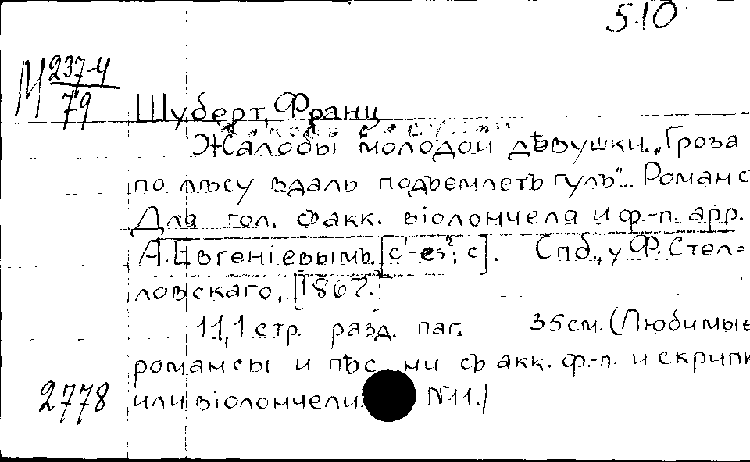 510
М 237-4
79
Шуберт, Франц
Жалобы молодой дѣвушки. „Гроза
по лѣсу вдаль подъемлетъ гулъ"... Романс
Для гол. с акк. віолончеля и ф-п. арр.
А. Евгеніевымъ. [c¹-es²; c]. Спб., у Ф. Стел=
ловскаго, [1867.
11,1 стр. разд. паг. 35 см. (Любимые
романсы и пѣс ми съ акк. ф-п. и скрипк
2778 или віолончели. №11.)